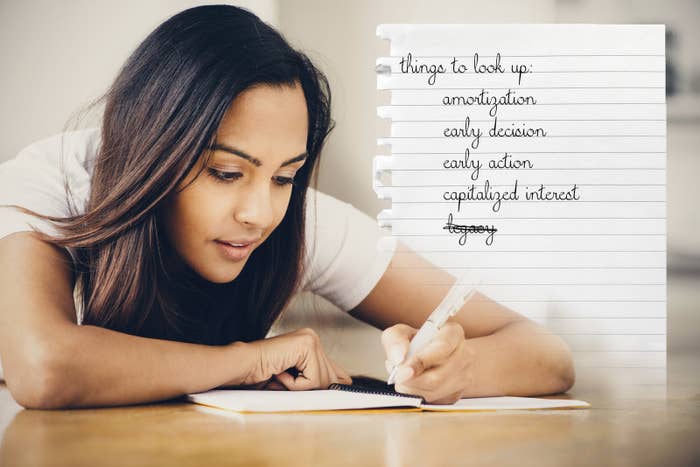 things to look up:
amortization
early decision
early action
capitalized interest
legacy